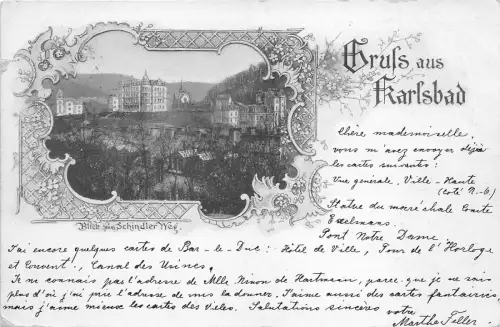 Gruſs aus
Karlsbad
Chère, mademoiselle,
vous m'avez envoyer déjà
les cartes suivantes:
Vue générale, Ville-Haute
(Coté N.-O)
Statue du maréchale Comte
Exelmans.
Pont Notre Dame
Blick vom Schindler Weg.
J'ai encore quelques cartes de Bar-le-Duc: Hôtel de Ville, Tour de l'Horloge
et Couvent, Canal des Usines.
Je ne connais pas l'adresse de Mlle Ninon de Hartmain, parce-que je ne sais
plus d'où j'ai pris l'adresse de vous la donner. J'aime aussi des cartes fantaisies,
mais j'aime mieux les cartes des Viles. Salutations sincères
votre
Marthe Feller.